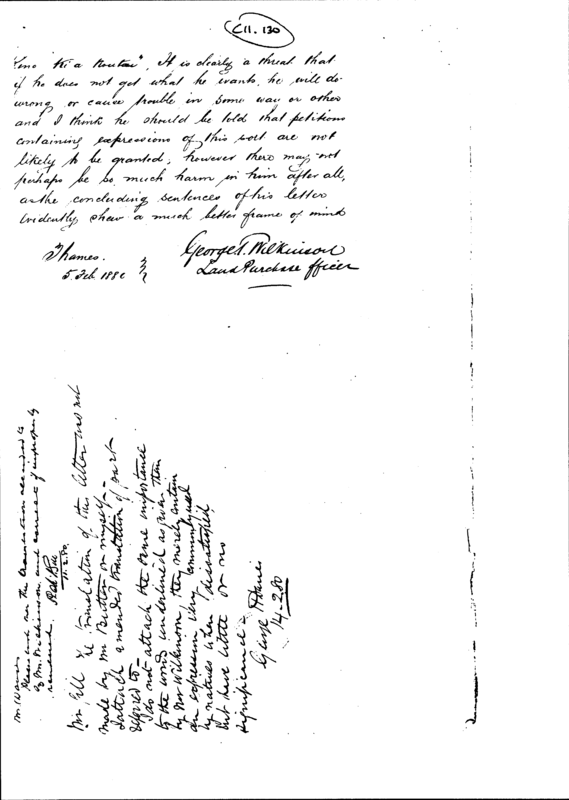 C11. 130
"
It is clearly a threat that
if he does not get what he wants, he will do
wrong or cause trouble in some way or other
and I think he should be told that petitions
containing expressions of this sort are not
likely to be granted; however there may not
perhaps be so much harm in him after all,
as the concluding sentences of his letter
evidently shew a much better frame of mind
Thames.
5. Feb. 188
George T. Wilkinson
Land Purchase Officer
Please and see the translation
by Mr. Wilkinson and correct if improperly
rendered.
11.2.80
Mr. Gill The translation of this letter was not
made by Mr Butler or myself -
I attach amended translation of part
referred to -
I do not attach the same importance
to the word underlined as given then
by Mr Wilkinson, they merely contain
an expression very commonly used
by natives when dissatisfied
but have little or no
significance -
14.2.80